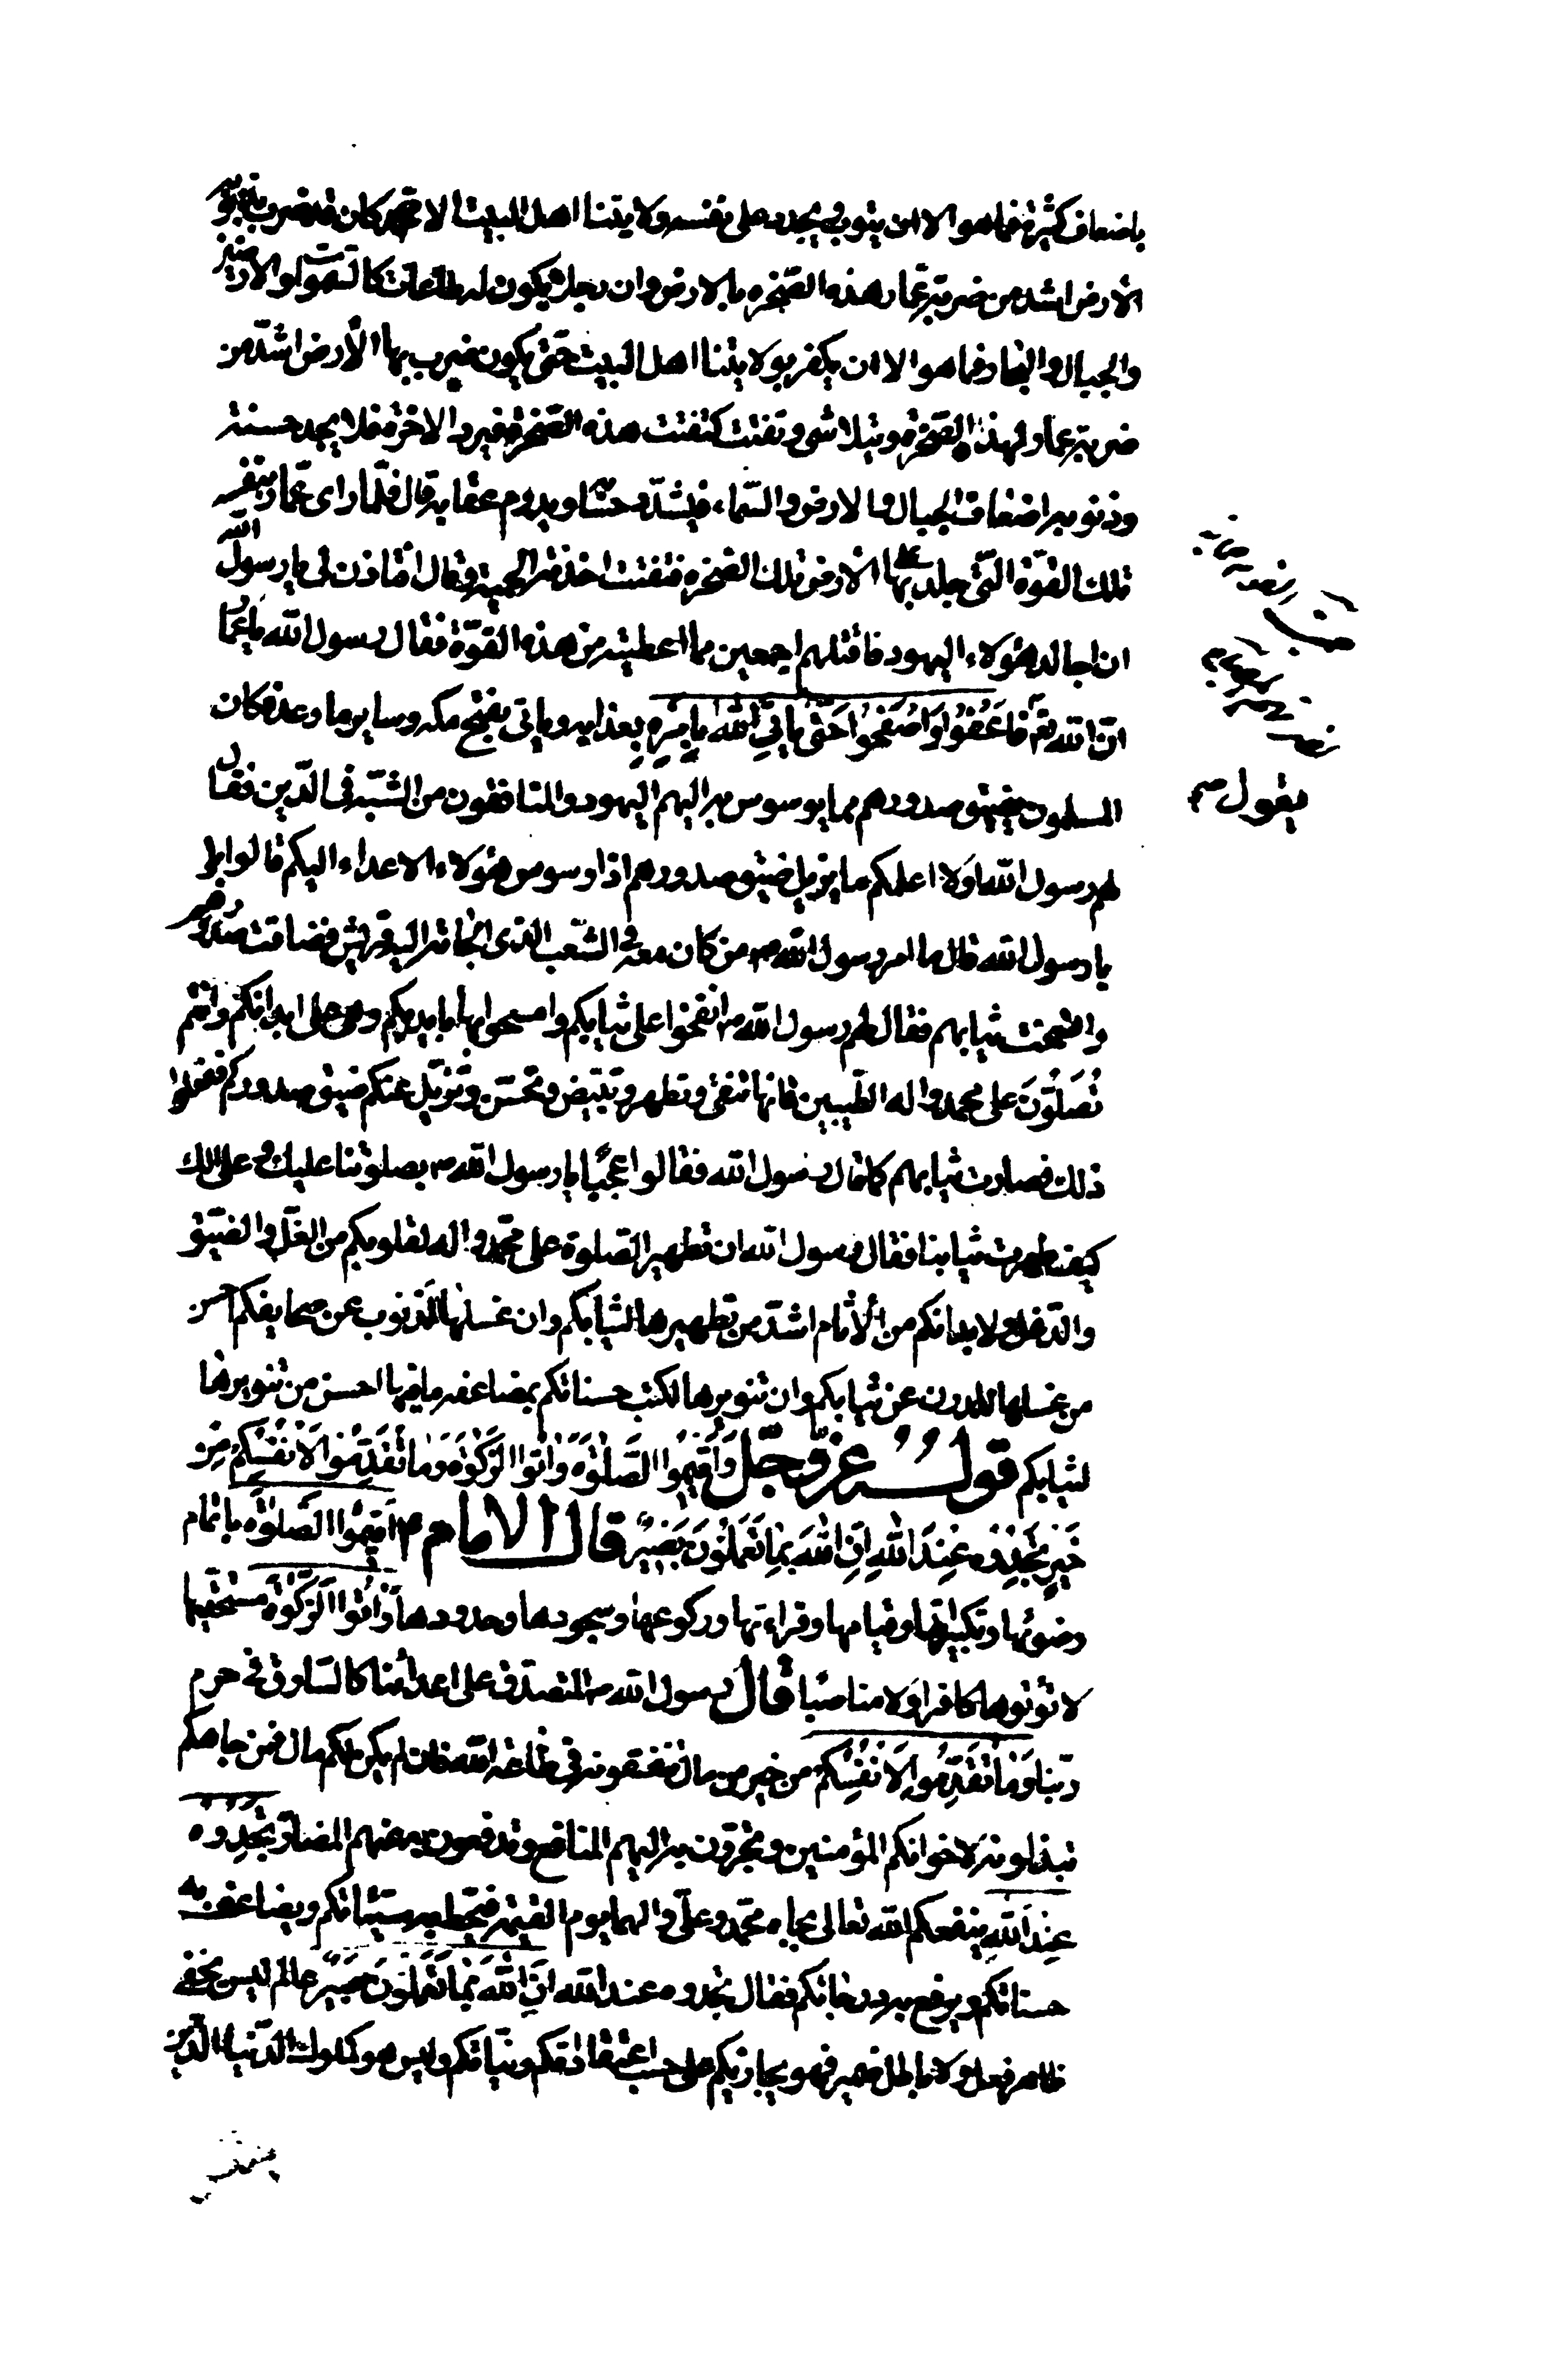 باضعاف كثيرة فما هو الا ان يتوب ويجدد على نفسه ولايتنا اهل البيت الا كان قد ضرب بذنوبه
الأرض اشد من ضربة عمار هذه الصخرة بالارض وان رجلا يكون له طاعات كالسموات والارضين
والجبال والبحار فما هو الا ان يكفر بولايتنا اهل البيت حتى يكون ضرب بها الأرض اشد من
ضربة عمار لهذه الصخرة ويتلاشى وتفتت كتفتت هذه الصخرة فيرد الاخرة فلا يجد حسنة
وذنوبه اضعاف الجبال والارض والسماء، فيشدد حسابه ويدوم عقابه قال فلما راى عمار بنفسه
تلك القوة التى جلد بها الارض تلك الصخرة فتفتت اخذته الحمية وقال أتأذن لى يا رسول الله
ان اجالد هؤلاء اليهود فاقتلهم اجمعين بما اعطيته من هذه القوة فقال رسول الله يا عمار
ان الله يقول فَاعْفُوا وَاصْفَحُوا حَتّى يَأتِيَ اللهُ بِأمْرِهِ بعذابه وياتى بفتح مكه وساير ما وعد فكان
المسلمون يضيق صدورهم مما يوسوس به اليهم اليهود والمنافقون من الشبه فى الدين فقال
لهم رسول الله اولا اعلمكم ما يزيل ضيق صدوركم اذا وسوس هؤلاء الاعداء اليكم قالوا بلى
يا رسول الله قال ما امر رسول الله ص من كان معه فى الشعب الذى الجاته اليه قريش فضاقت صدورهم
واتسخت ثيابهم فقال لهم رسول الله ص انفخوا على ثيابكم وامسحوا بها بايديكم وهى على ابدانكم وانتم
تُصَلّونَ على محمد واله الطيبين فانها تنقى وتطهر وتبيض وتحسن وتزيل عنكم ضيق صدوركم ففعلوا
ذلك فصارت ثيابهم كما قال رسول الله فقالوا عجبًا يا رسول الله ص بصلوتنا عليك وعلى الك
كيف طهرت ثيابنا فقال رسول الله ان تطهير الصلوة على محمد واله لقلوبكم من الغل والضيق
والدغل ولابدانكم من الأثام اشد من تطهيرها لثيابكم وان غسلها للذنوب عن صحايفكم احسن
من غسلها للدرن عن ثيابكم وان تنويرها لكتب حسناتكم بمضاعفه ما فيها احسن من تنويرها
لثيابكم قوله عزّ وجلّ وَأقِيمُوا الصَّلوةَ وَاتُوا الزَّكوةَ وَمَا تُقَدِّمُوا لِأنْفُسِكُمْ مِنْ
خَيْرٍ تَجِدُوهُ عِنْدَ اللهِ اِنَّ اللهَ بِمَا تَعْمَلُونَ بَصِيرٌ قال الامام ع أقِيمُوا الصَّلوةَ باتمام
وضوئها وتكبيراتها وقيامها وقراءتها وركوعها وسجودها وحدودها وَاتُوا الزَّكوةَ مستحقيها
لا تؤتوها كافرا ولا مناصبا قال رسول الله ص المتصدق على اعدائنا كالسارق فى حرم
ربنا وَمَا تُقَدِّمُوا لِأنْفُسِكُمْ من خير من مال تنفقونه فى طاعة الله فان لم يكن لكم مال فمن جاهكم
تبذلونه لاخوانكم المؤمنين وتجرون به اليهم المنافع وتدفعون به عنهم المضار تَجِدُوه
عِنْدَ اللهِ ينفعكم الله تعالى بجاه محمد وعلى والهما يوم القيمة فيحط به سيئاتكم ويضاعف به
حسناتكم ويرفع به درجاتكم فقال تجدوه عند الله اِنَّ اللهَ بِمَا تَعْمَلُونَ بَصِيرٌ عالم ليس يخفى
ظاهر فعل ولا باطل ضمير فهو يجازيكم على حسب اعتقاداتكم ونياتكم وليس هو كملوك الدنيا الذين
يقول